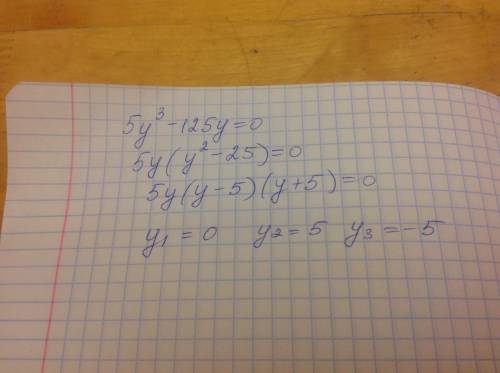 5y³-125y=0
5y(y²-25)=0
5y(y-5)(y+5)=0
y₁=0 y₂=5 y₃=-5